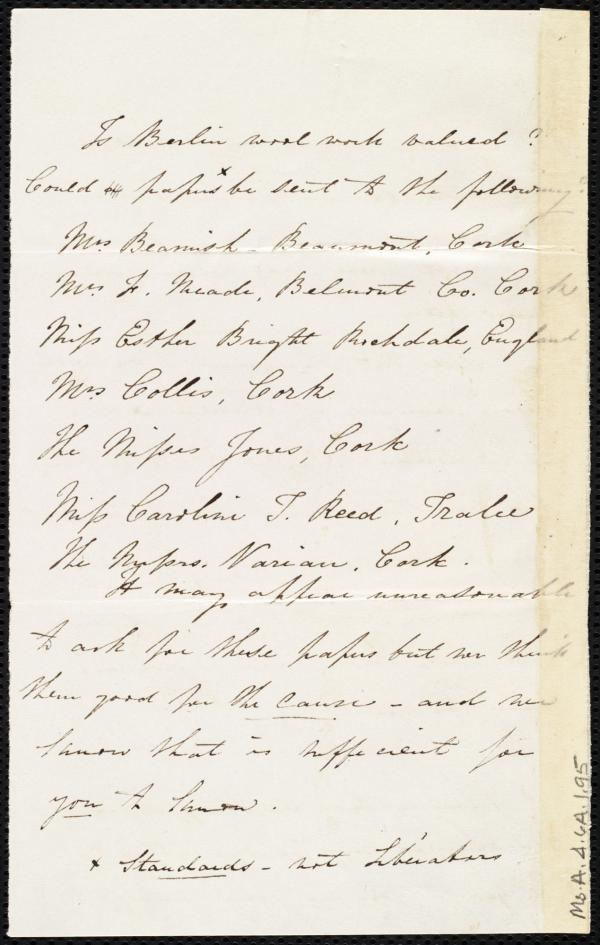 Is Berlin wool work valued ?
Could papers x be sent to the following ?
Mrs Beamish - Beaumont, Cork
Mrs Jr. Meade, Belmont Co. Cork
Miss Esther Bright Rochdale, England
Mrs Collis, Cork
The Misses Jones, Cork
Miss Caroline T. Reed, Tralee
The Messrs. Varian, Cork.
It may appear unreasonable
to ask for these papers but we think
them good for the cause - and we
know that is sufficient for
you to know.
x Standards - not Liberators
Ms. A. 4. 6A. 1. 95